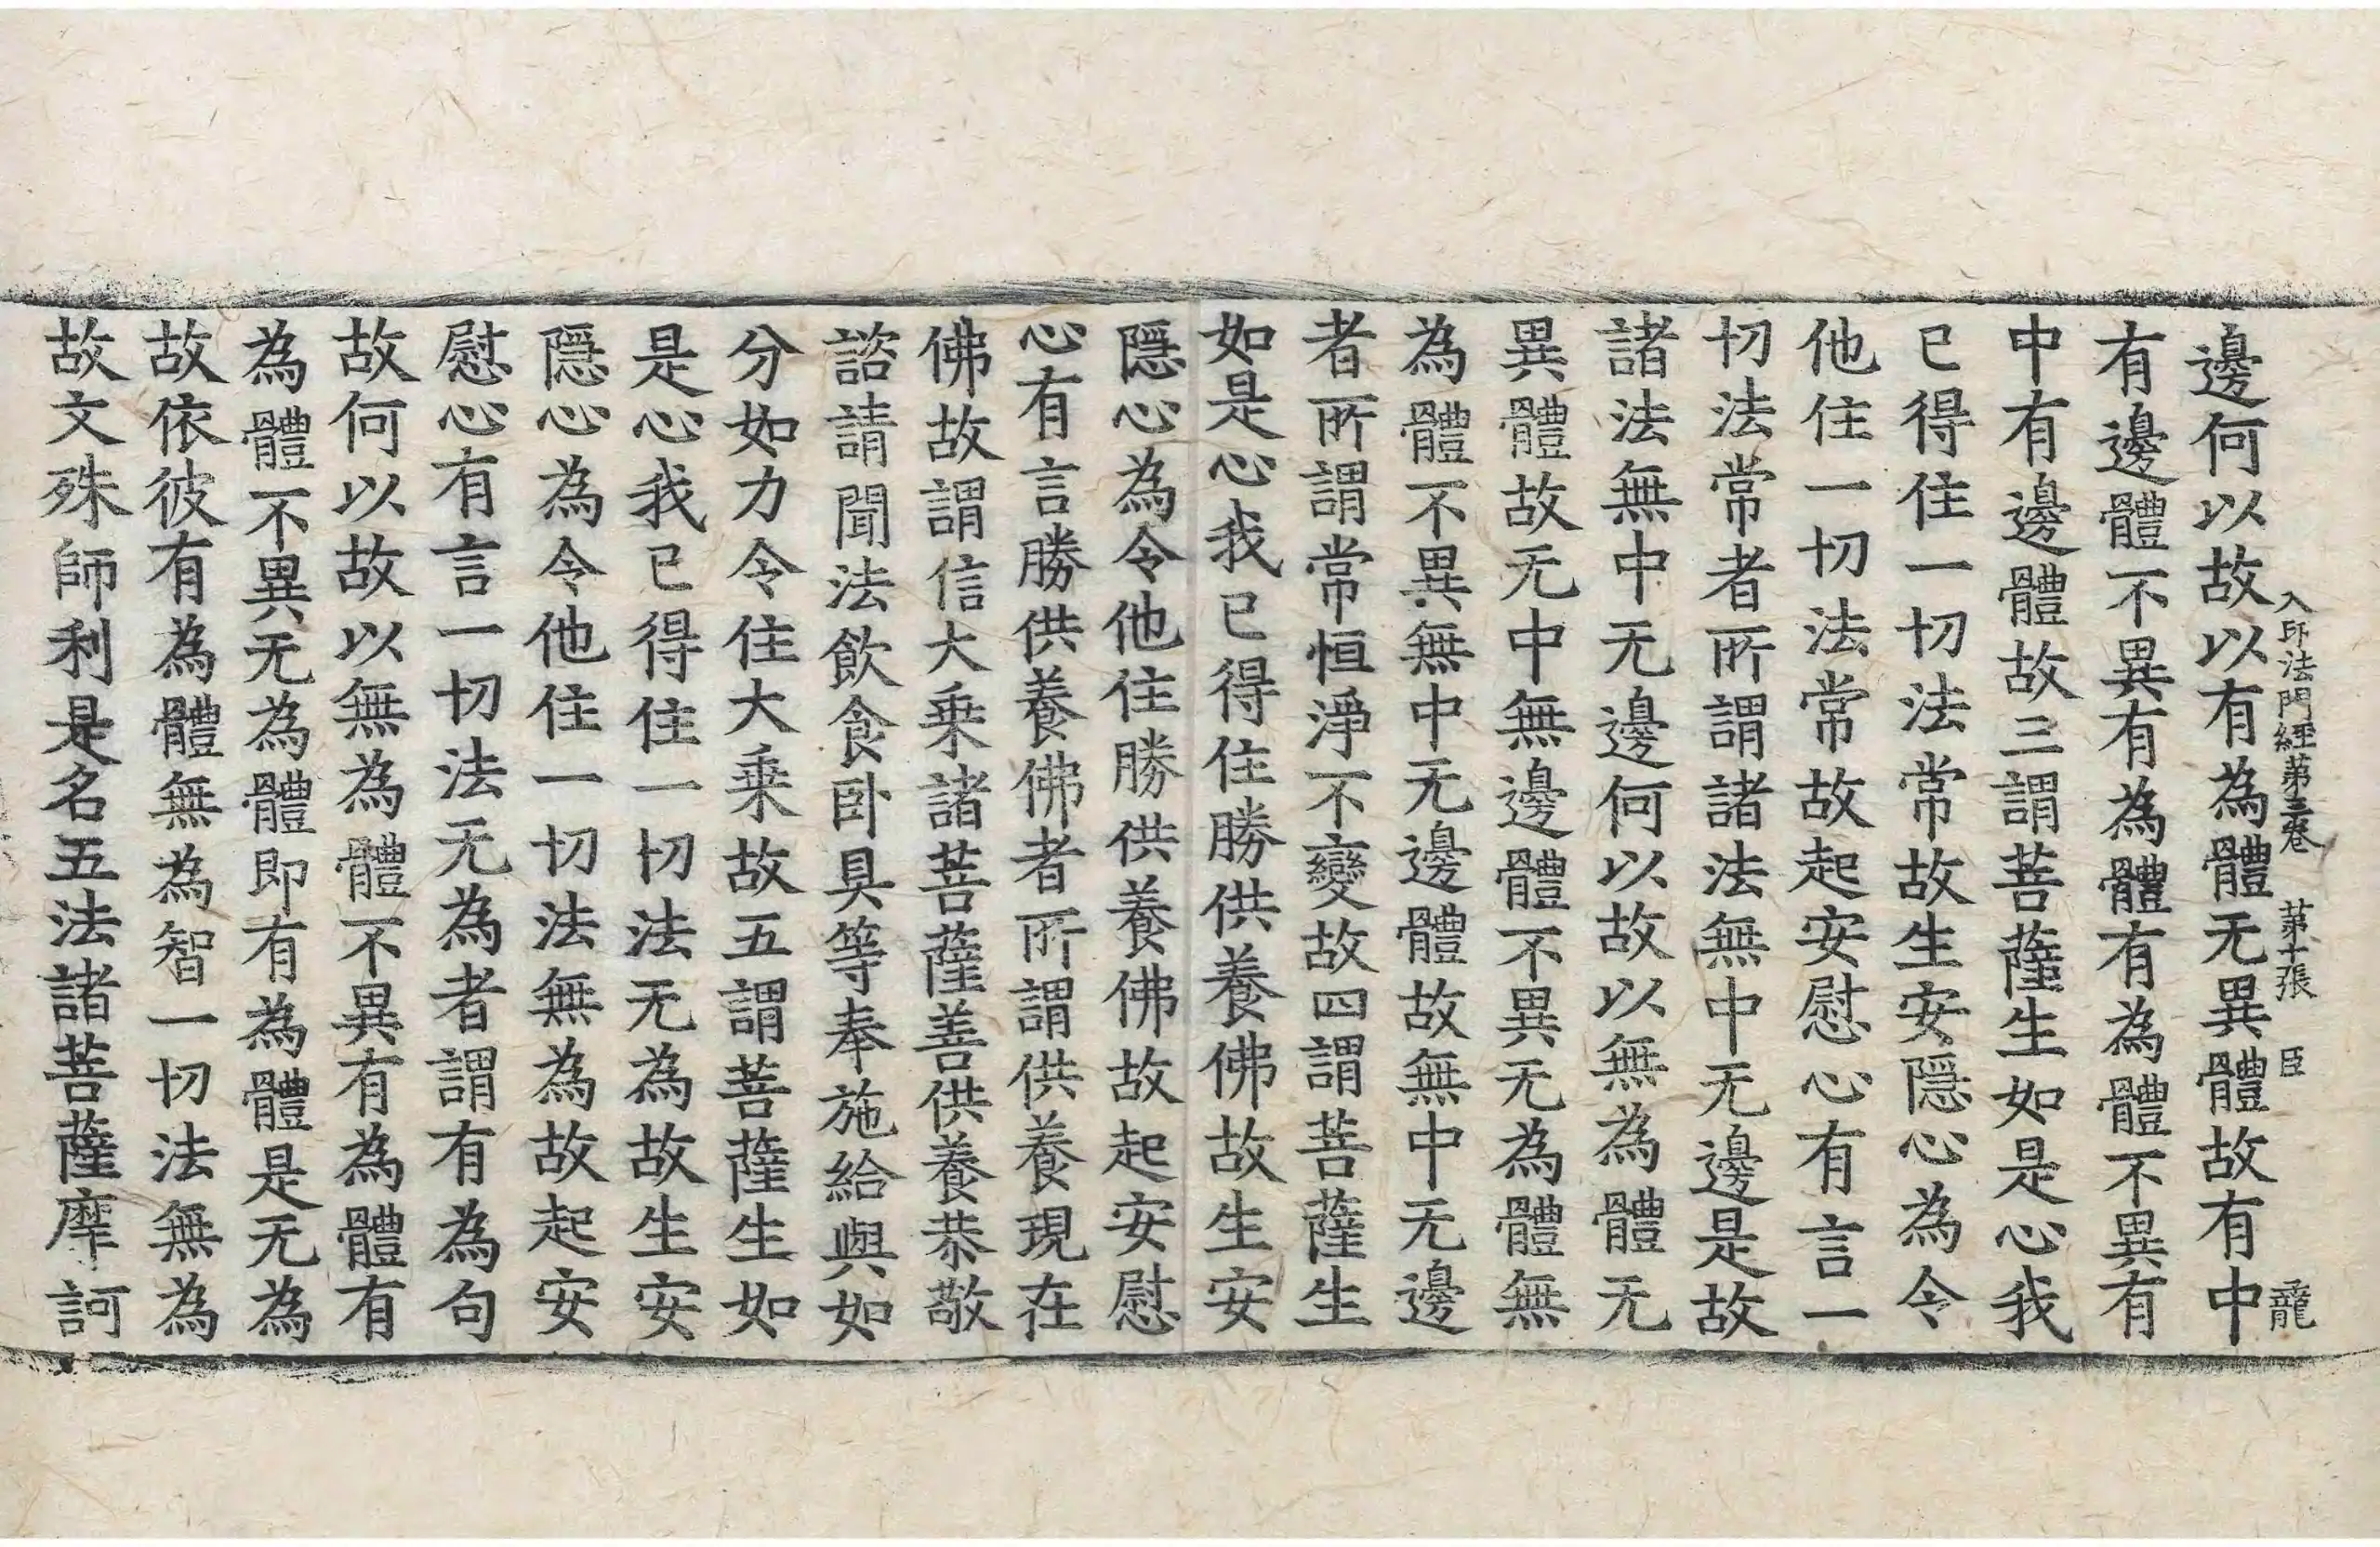 入印法門經第三卷 第十張 臣
邊何以故以有為體无異體故有中
有邊體不異有為體有為體不異有
中有邊體故三謂菩薩生如是心我
已得住一切法常故生安隱心為令
他住一切法常故起安慰心有言一
切法常者所謂諸法無中无邊是故
諸法無中无邊何以故以無為體无
異體故无中無邊體不異无為體無
為體不異無中无邊體故無中无邊
者所謂常恒淨不變故四謂菩薩生
如是心我已得住勝供養佛故生安
隱心為令他住勝供養佛故起安慰
心有言勝供養佛者所謂供養現在
佛故謂信大乗諸菩薩善供養恭敬
諮請聞法飲食卧具等奉施給與如
分如力令住大乗故五謂菩薩生如
是心我已得住一切法无為故生安
隱心為令他住一切法無為故起安
慰心有言一切法无為者謂有為句
故何以故以無為體不異有為體有
為體不異无為體即有為體是无為
故依彼有為體無為智一切法無為
故文殊師利是名五法諸菩薩摩訶